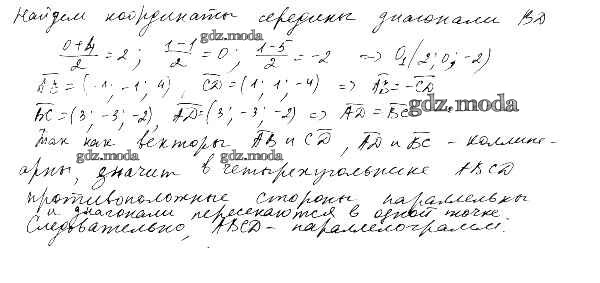 Найдем координаты середины диагонали BD
gdz.moda
(0+4)/2 = 2; (1-1)/2 = 0; (1-5)/2 = -2 => O₁(2; 0; -2)
AB = (-1; -1; 4), CD = (1; 1; -4) => AB = -CD
BC = (3; -3; -2), AD = (3; -3; -2) => AD = BC
gdz.moda
Так как векторы AB и CD, AD и BC - коллине-
gdz.moda gdz.moda
арны, значит в четырехугольнике ABCD
противоположные стороны параллельны
и диагонали пересекаются в одной точке.
Следовательно, ABCD - параллелограмм.